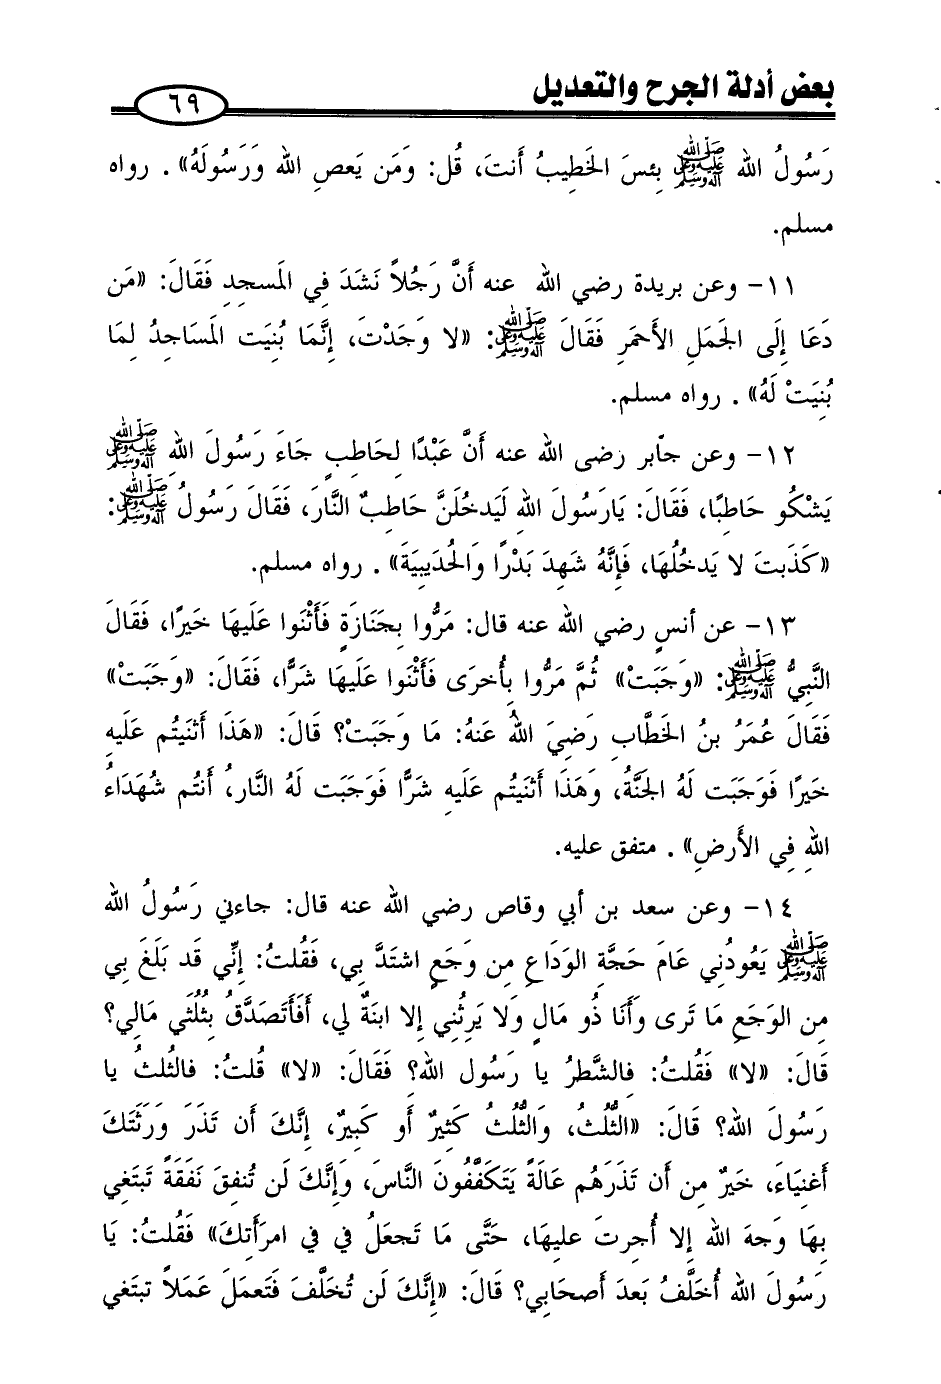 بعض أدلة الجرح والتعديل
٦٩
رَسُولُ الله ﷺ بِئسَ الخَطِيبُ أَنتَ، قُل: وَمَن يَعصِ الله وَرَسُولَهُ» . رواه
مسلم.
١١- وعن بريدة رضي الله عنه أَنَّ رَجُلاً نَشَدَ فِي المَسجِدِ فَقَالَ: «مَن
دَعَا إِلَى الجَمَلِ الأَحمَرِ فَقَالَ ﷺ: «لا وَجَدْتَ، إِنَّمَا بُنِيَت المَسَاجِدُ لِمَا
بُنِيَتْ لَهُ» . رواه مسلم.
١٢- وعن جابر رضى الله عنه أَنَّ عَبْدًا لِحَاطِبٍ جَاءَ رَسُولَ اللهِ ﷺ
يَشكُو حَاطِبًا، فَقَالَ: يَارَسُولَ الله لَيَدخُلَنَّ حَاطِبٌ النَّارَ، فَقَالَ رَسُولُ ﷺ:
«كَذَبتَ لا يَدخُلُهَا، فَإِنَّهُ شَهِدَ بَدْرًا وَالحُدَيبِيَةَ» . رواه مسلم.
١٣- عن أنسٍ رضي الله عنه قال: مَرُّوا بِجَنَازَةٍ فَأَثْنَوا عَلَيهَا خَيرًا، فَقَالَ
النَّبِيُّ ﷺ: «وَجَبَتْ» ثُمَّ مَرُّوا بِأُخرَى فَأَثْنَوا عَلَيهَا شَرًّا، فَقَالَ: «وَجَبَتْ»
فَقَالَ عُمَرُ بنُ الخَطَّابِ رَضِيَ اللهُ عَنهُ: مَا وَجَبَتْ؟ قَالَ: «هَذَا أَثنَيتُم عَلَيهِ
خَيرًا فَوَجَبَت لَهُ الجَنَّةُ، وَهَذَا أَثنَيتُم عَلَيهِ شَرًّا فَوَجَبَت لَهُ النَّارُ، أَنتُم شُهَدَاءُ
اللهِ فِي الأَرضِ» . متفق عليه.
١٤- وعن سعد بن أبي وقاص رضي الله عنه قال: جاءني رَسُولُ الله
ﷺ يَعُودُنِي عَامَ حَجَّةِ الوَدَاعِ مِن وَجَعٍ اشتَدَّ بِي، فَقُلتُ: إِنِّي قَد بَلَغَ بِي
مِن الوَجَعِ مَا تَرى وَأَنَا ذُو مَالٍ وَلا يَرِثُنِي إلا ابنَةٌ لي، أَفَأَتَصَدَّقُ بِثُلُثَي مَالِي؟
قَالَ: «لا» فَقُلتُ: فالشَّطرُ يا رَسُول الله؟ فَقَالَ: «لا» قُلتُ: فالثُلثُ يا
رَسُولَ الله؟ قَالَ: «الثُّلُثُ، وَالثُّلُثُ كَثِيرٌ أَو كَبِيرٌ، إِنَّكَ أَن تَذَرَ وَرَثَتَكَ
أَغنِيَاءَ، خَيرٌ مِن أَن تَذَرَهُم عَالَةً يَتَكَفَّفُونَ النَّاسَ، وَإِنَّكَ لَن تُنفِقَ نَفَقَةً تَبتَغِي
بِهَا وَجهَ اللهِ إلا أُجِرتَ عليهَا، حَتَّى مَا تَجعَلُ في في امرَأَتِكَ» فَقُلتُ: يَا
رَسُولَ الله أُخَلَّفُ بَعدَ أَصحَابِي؟ قَالَ: «إِنَّكَ لَن تُخَلَّفَ فَتَعمَلَ عَمَلاً تبتَغي